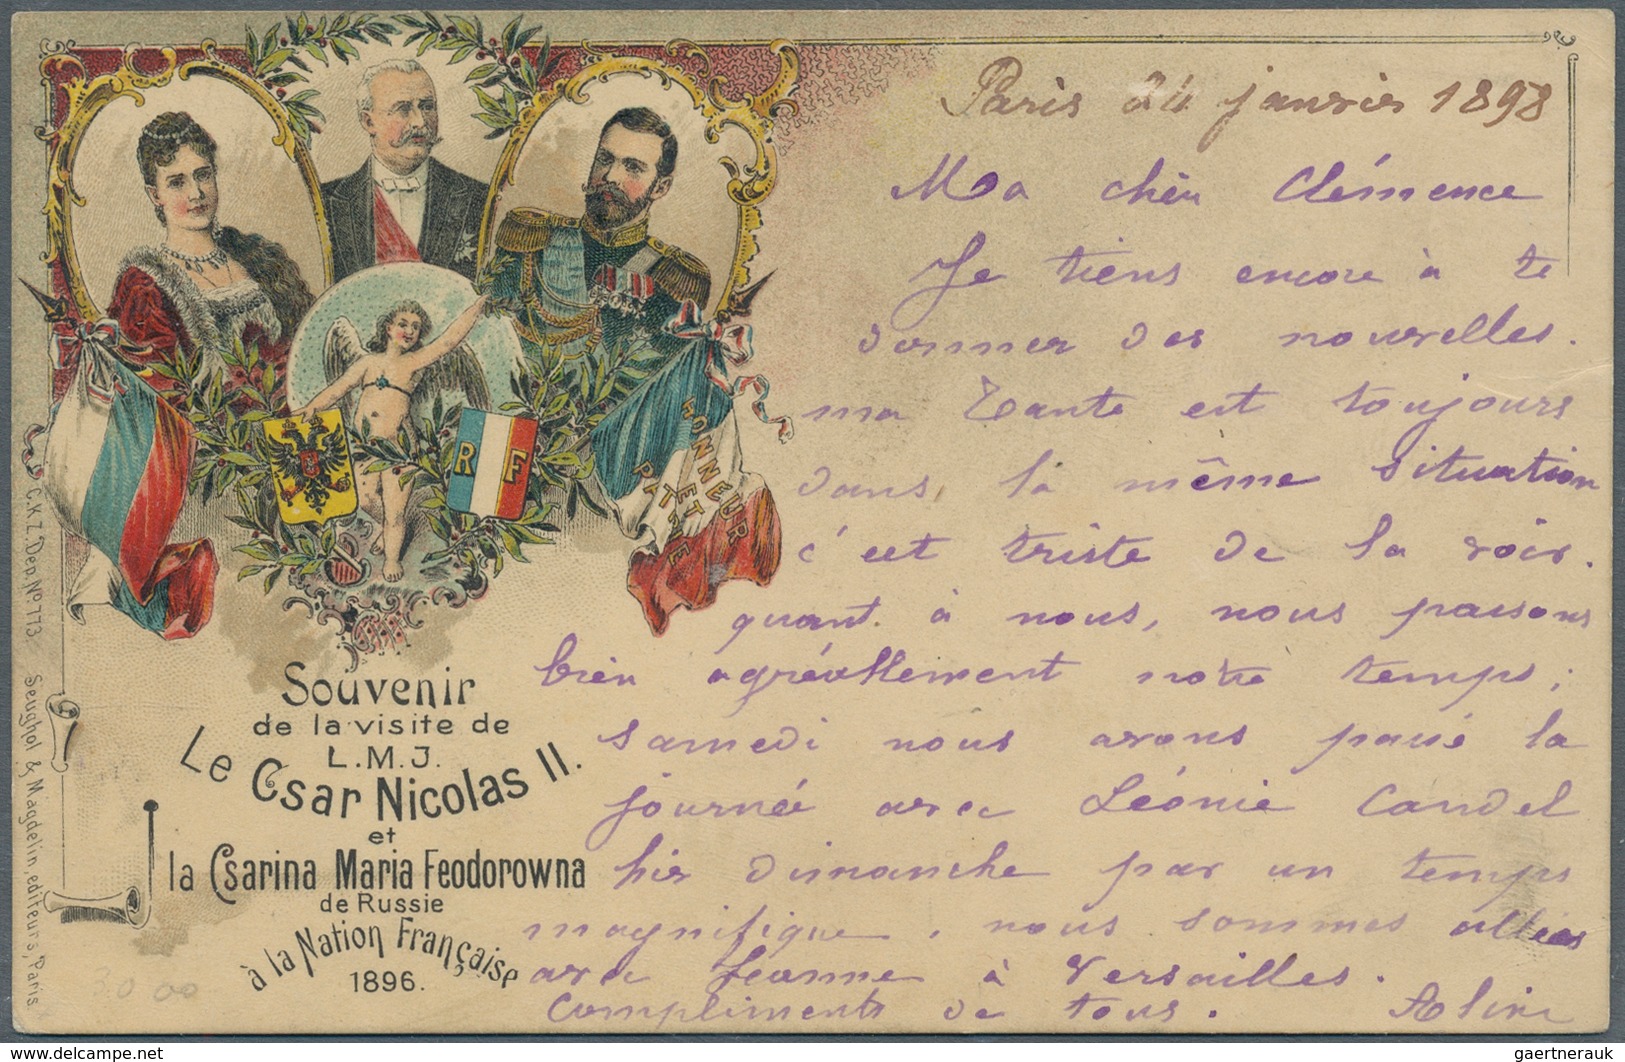 Paris 24 janvier 1898
Ma chèr Clémence
Je tiens encore à te
donner des nouvelles.
ma Tante est toujours
dans la même situation
c'est triste de la voir.
quant à nous, nous passons
bien agréablement notre temps;
samedi nous avons passé la
journée avec Léonie Candel
hier dimanche par un temps
magnifique, nous sommes allées
avec Jeanne à Versailles.
Compliments de tous. Aline
HONNEUR
ET
PATRIE
R F
Souvenir
de la visite de
L.M.J.
Le Csar Nicolas II.
et
la Csarina Maria Feodorowna
de Russie
à la Nation Française
1896.
C.K.Z. Dep. No 773. Seughol & Magdelin, editeurs, Paris.
30 00
http://www.delcampe.net
gaertnerauk